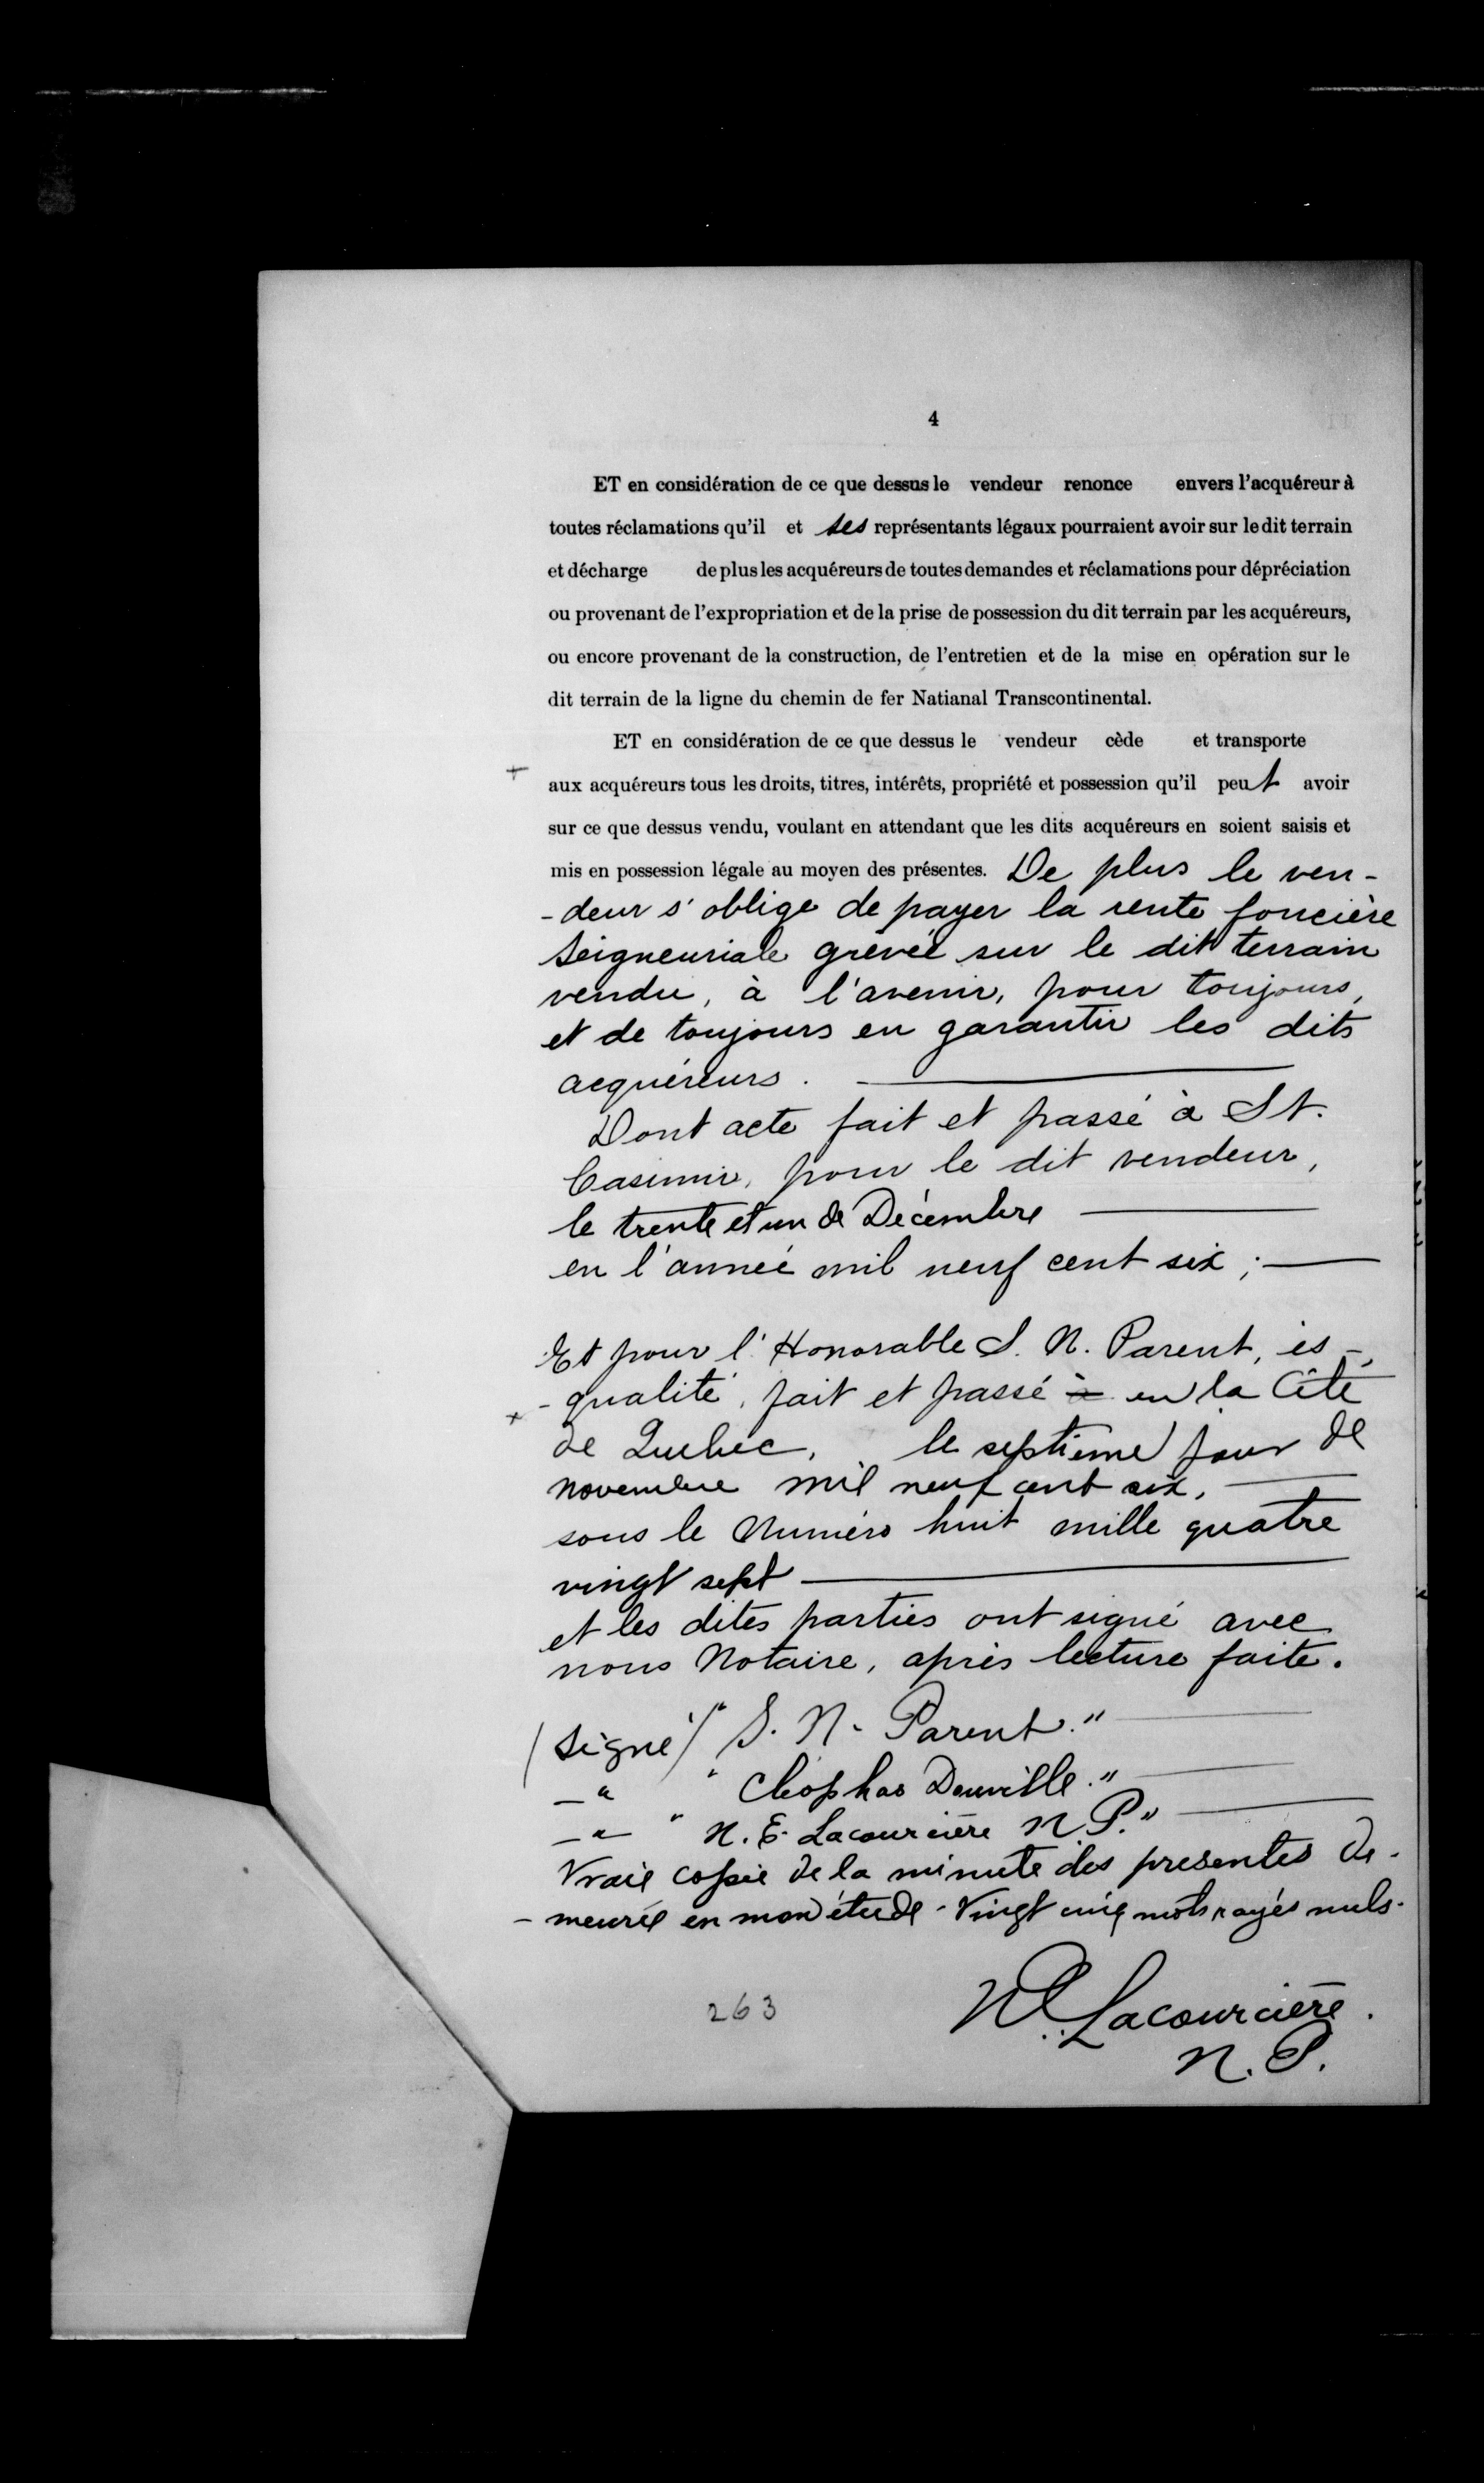 4
ET en considération de ce que dessus le vendeur renonce envers l'acquéreur à
toutes réclamations qu'il et ses représentants légaux pourraient avoir sur le dit terrain
et décharge de plus les acquéreurs de toutes demandes et réclamations pour dépréciation
ou provenant de l'expropriation et de la prise de possession du dit terrain par les acquéreurs,
ou encore provenant de la construction, de l'entretien et de la mise en opération sur le
dit terrain de la ligne du chemin de fer Natianal Transcontinental.
ET en considération de ce que dessus le vendeur cède et transporte
+ aux acquéreurs tous les droits, titres, intérêts, propriété et possession qu'il peut avoir
sur ce que dessus vendu, voulant en attendant que les dits acquéreurs en soient saisis et
mis en possession légale au moyen des présentes. De plus le ven-
-deur s'oblige de payer la rente foncière
seigneuriale grevée sur le dit terrain
vendu, à l'avenir, pour toujours,
et de toujours en garantir les dits
acquéreurs.
Dont acte fait et passé à St.
Casimir, pour le dit vendeur,
le trente et un de Décembre
en l'année mil neuf cent six ;
Et pour l'Honorable S. N. Parent, ès-
+ -qualité, fait et passé à en la Cité
de Québec, le septième jour de
novembre mil neuf cent six,
sous le Numéro huit mille quatre
vingt sept
et les dites parties ont signé avec
nous Notaire, après lecture faite.
(signé) "S. N. Parent."
— " " Cléophas Douville."
— " " N. E. Lacourcière N. P."
Vraie copie de la minute des présentes de-
-meurée en mon étude - Vingt cinq mots rayés nuls-
263
Lacourcière.
N. P.